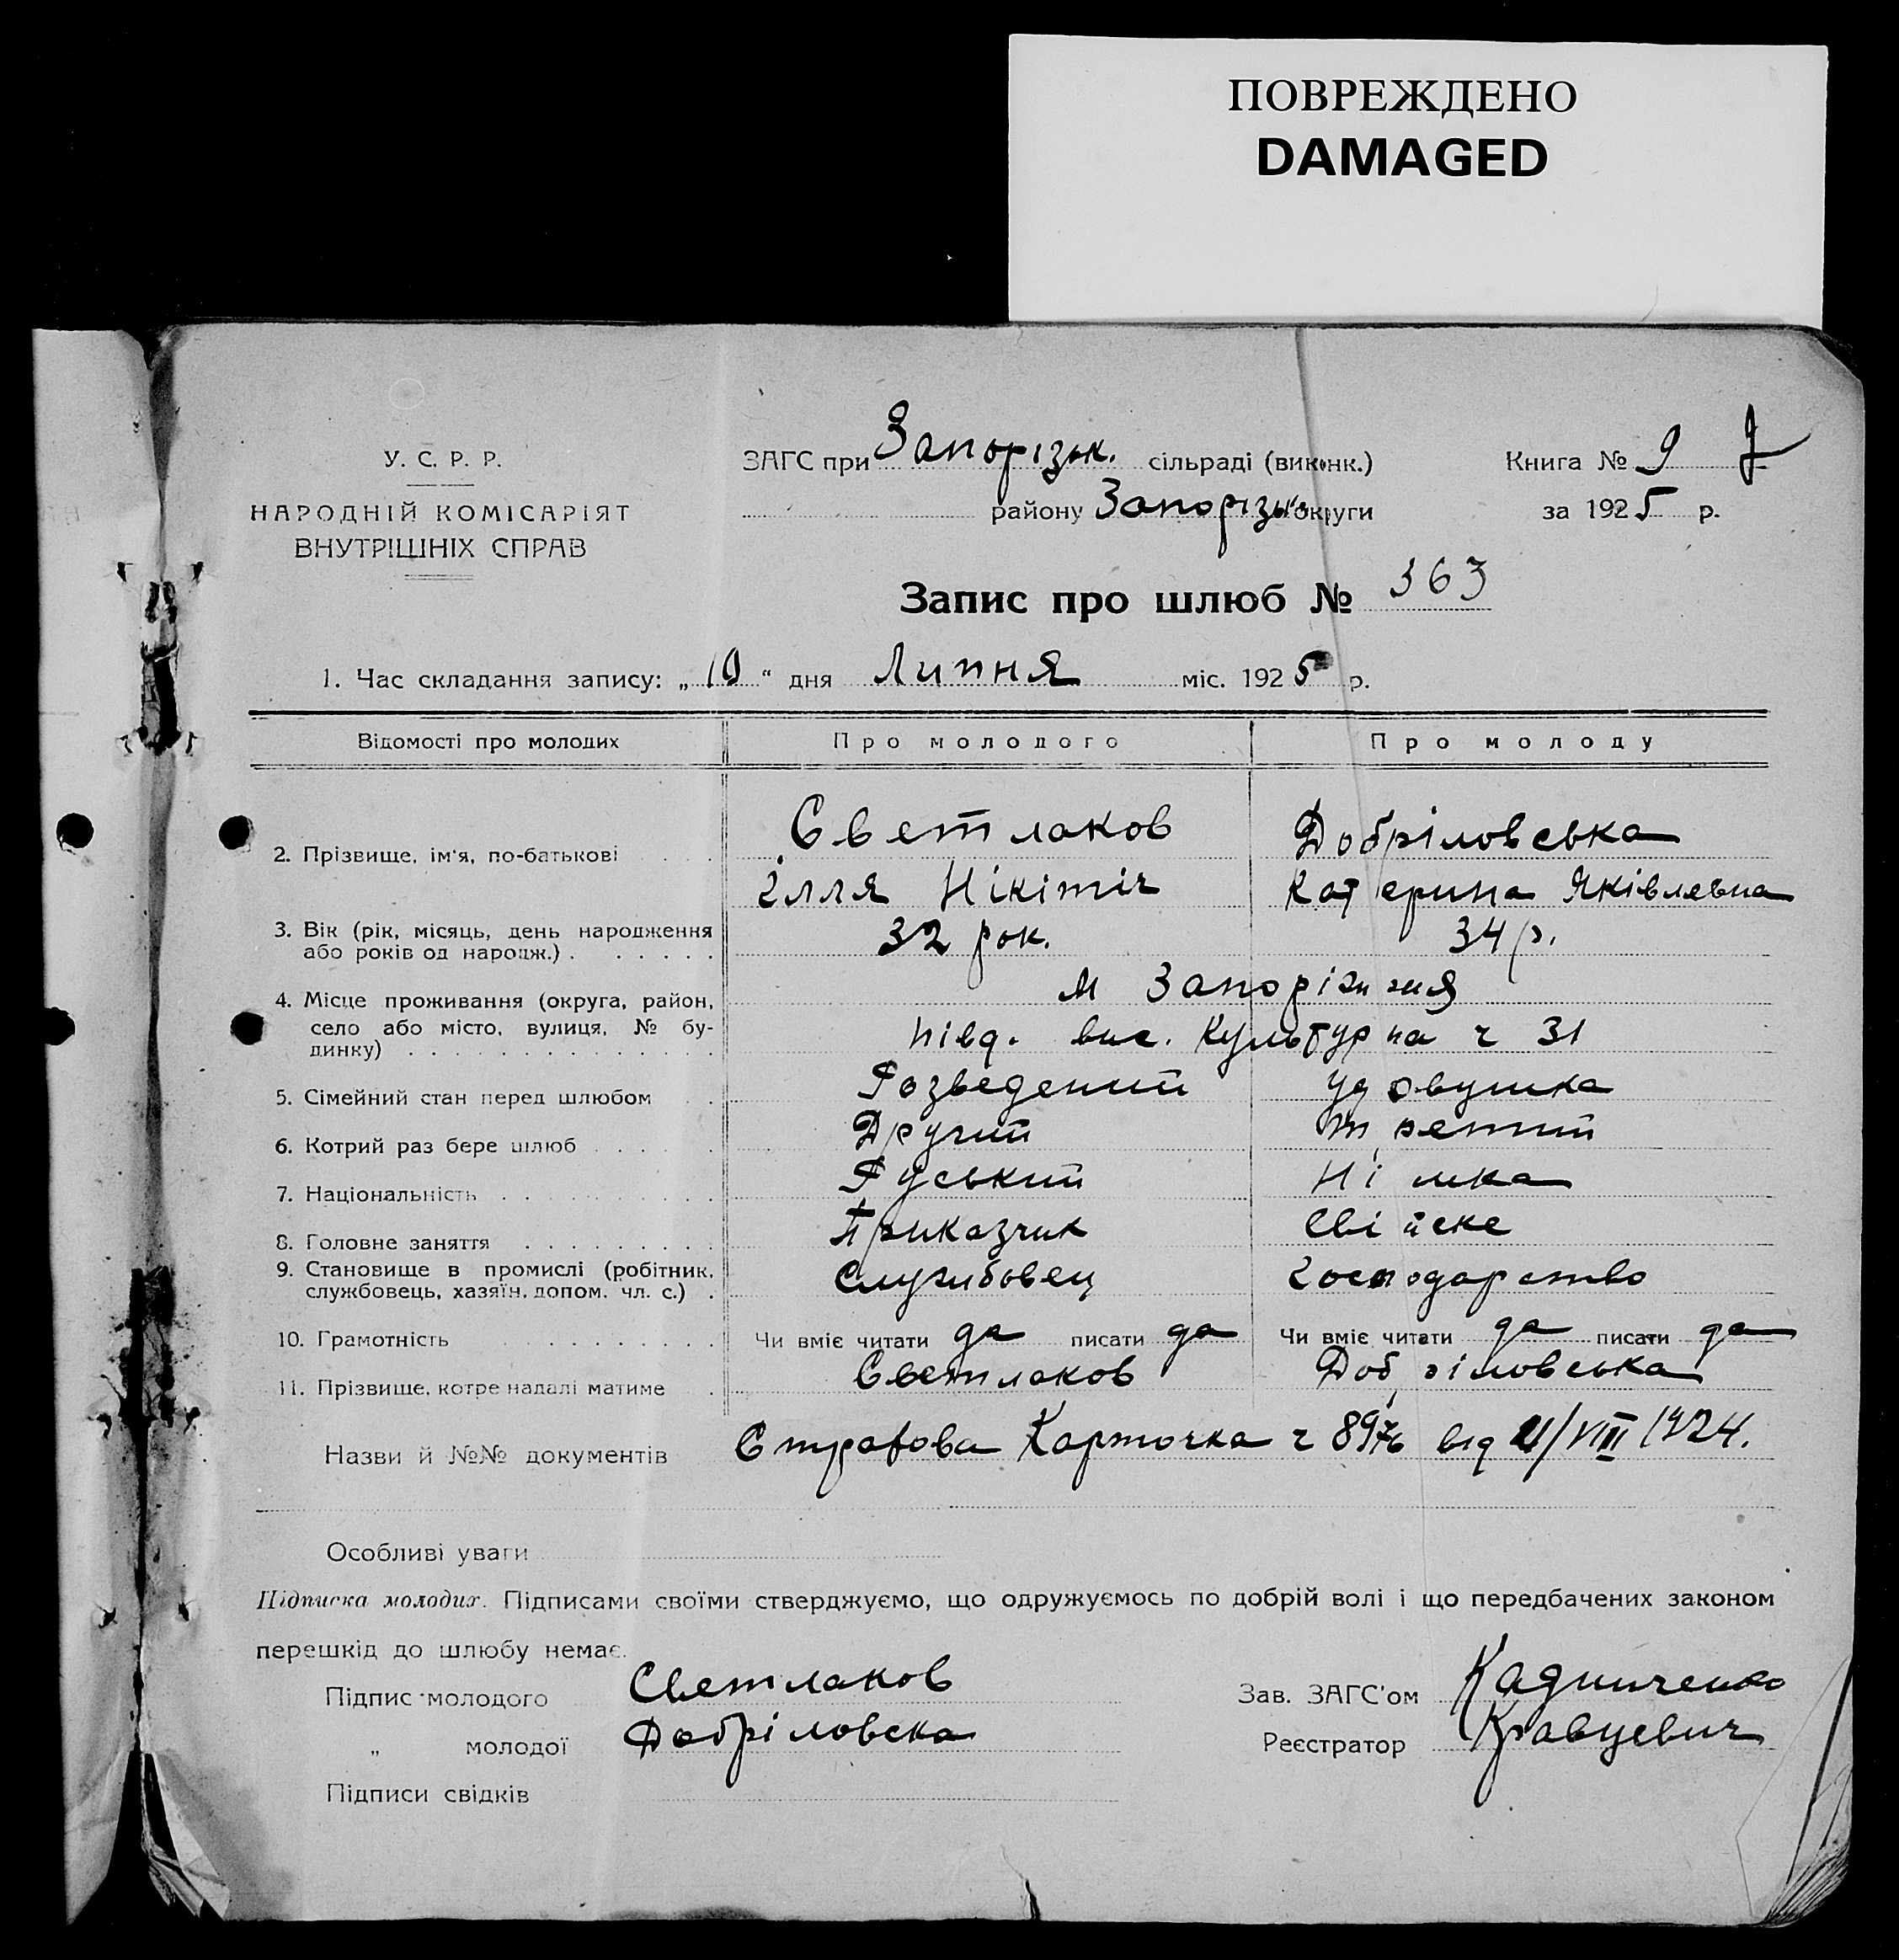 ПОВРЕЖДЕНО
DAMAGED
У. С. Р. Р.
НАРОДНІЙ КОМІСАРІЯТ
ВНУТРІШНІХ СПРАВ
ЗАГС при Запорізьк. сільраді (виконк.)
району Запорізьк округи
Книга № 9
за 1925 р.
Запис про шлюб № 363
1. Час складання запису: „10“ дня Липня міс. 1925 р.
Відомості про молодих Про молодого Про молоду
Светлаков Добріловська
2. Прізвище, ім'я, по-батькові
Ілля Нікітіч Катерина Яківлевна
3. Вік (рік, місяць, день народження
або років од народж.) . . . . . . 32 рок. 34 р.
4. Місце проживання (округа, район, м Запоріжжя
село або місто, вулиця, № бу-
динку) . . . . . . . . . . . . . . півд. вис. Культурна ч 31
5. Сімейний стан перед шлюбом . . Розведений Удовушка
6. Котрий раз бере шлюб . . . . . . Другий Третий
7. Національність . . . . . . . . . . Руський Німка
8. Головне заняття . . . . . . . . . Приказчик Свійске
9. Становище в промислі (робітник,
службовець, хазяїн, допом. чл. с.) . Службовец Господарство
10. Грамотність . . . . . . . . Чи вміє читати да писати да Чи вміє читати да писати да
11. Прізвище, котре надалі матиме . Светлаков Добріловська
Назви й №№ документів Страхова Карточка ч 8976 від /VIII 1924.
Особливі уваги
Підписка молодих. Підписами своїми стверджуємо, що одружуємось по добрій волі і що передбачених законом
перешкід до шлюбу немає.
Підпис молодого Светлаков
Зав. ЗАГС'ом
„ молодої Добріловска
Реєстратор Кравцевич
Підписи свідків